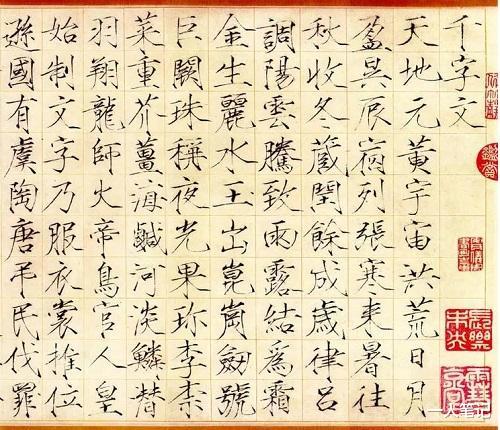 千字文
天地元黃宇宙洪荒日月
盈昃辰宿列張寒來暑往
秋收冬藏閏餘成歲律呂
調陽雲騰致雨露結爲霜
金生麗水玉出崑崗劒號
巨闕珠稱夜光果珍李柰
菜重芥薑海鹹河淡鱗潛
羽翔龍師火帝鳥官人皇
始制文字乃服衣裳推位
遜國有虞陶唐弔民伐罪
長樂未央